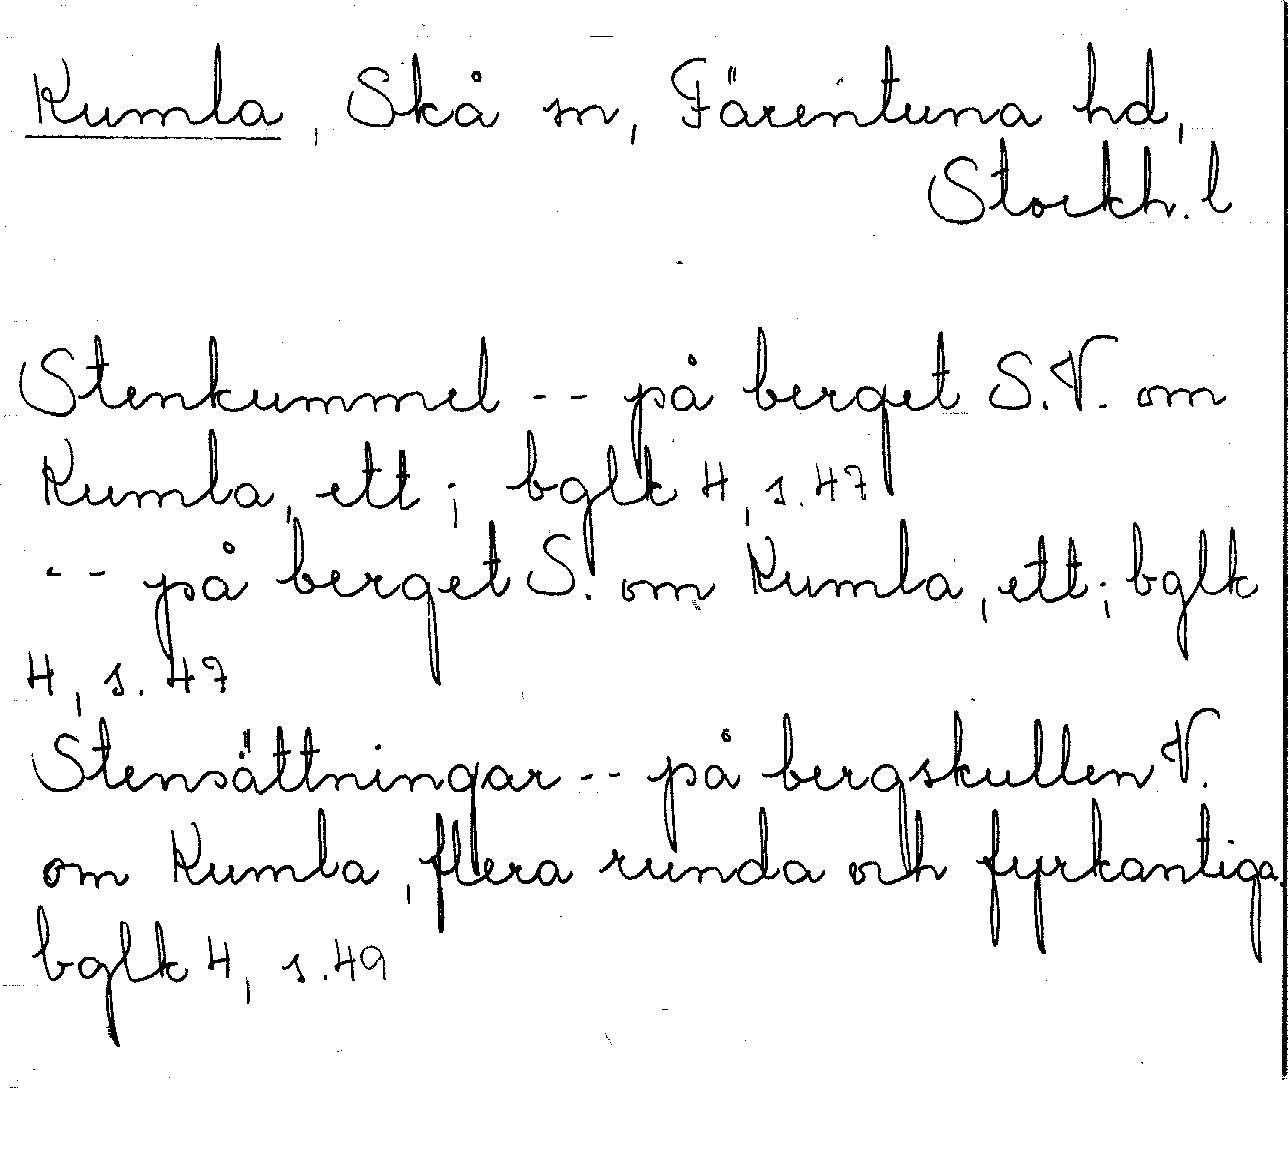 Kumla, Skå sn, Färentuna hd,
Stockh. l
Stenkummel -- på berget S.V. om
Kumla, ett; bglk 4, s. 47
-- på berget S. om Kumla, ett; bglk
4, s. 47
Stensättningar -- på bergskullen V.
om Kumla, flera runda och fyrkantiga,
bglk 4, s. 49